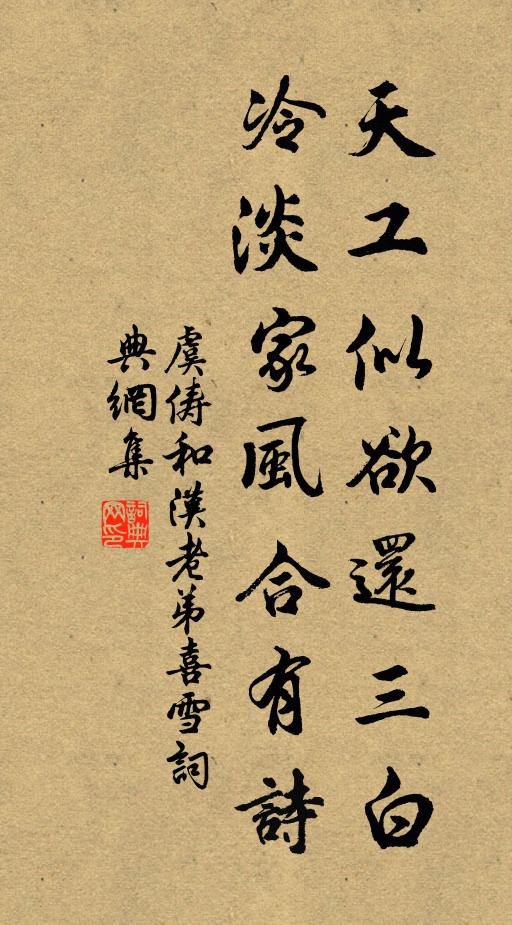 天工似欲還三白
冷淡家風合有詩
虞儔和漢老弟喜雪詞
典網集
詞典網印